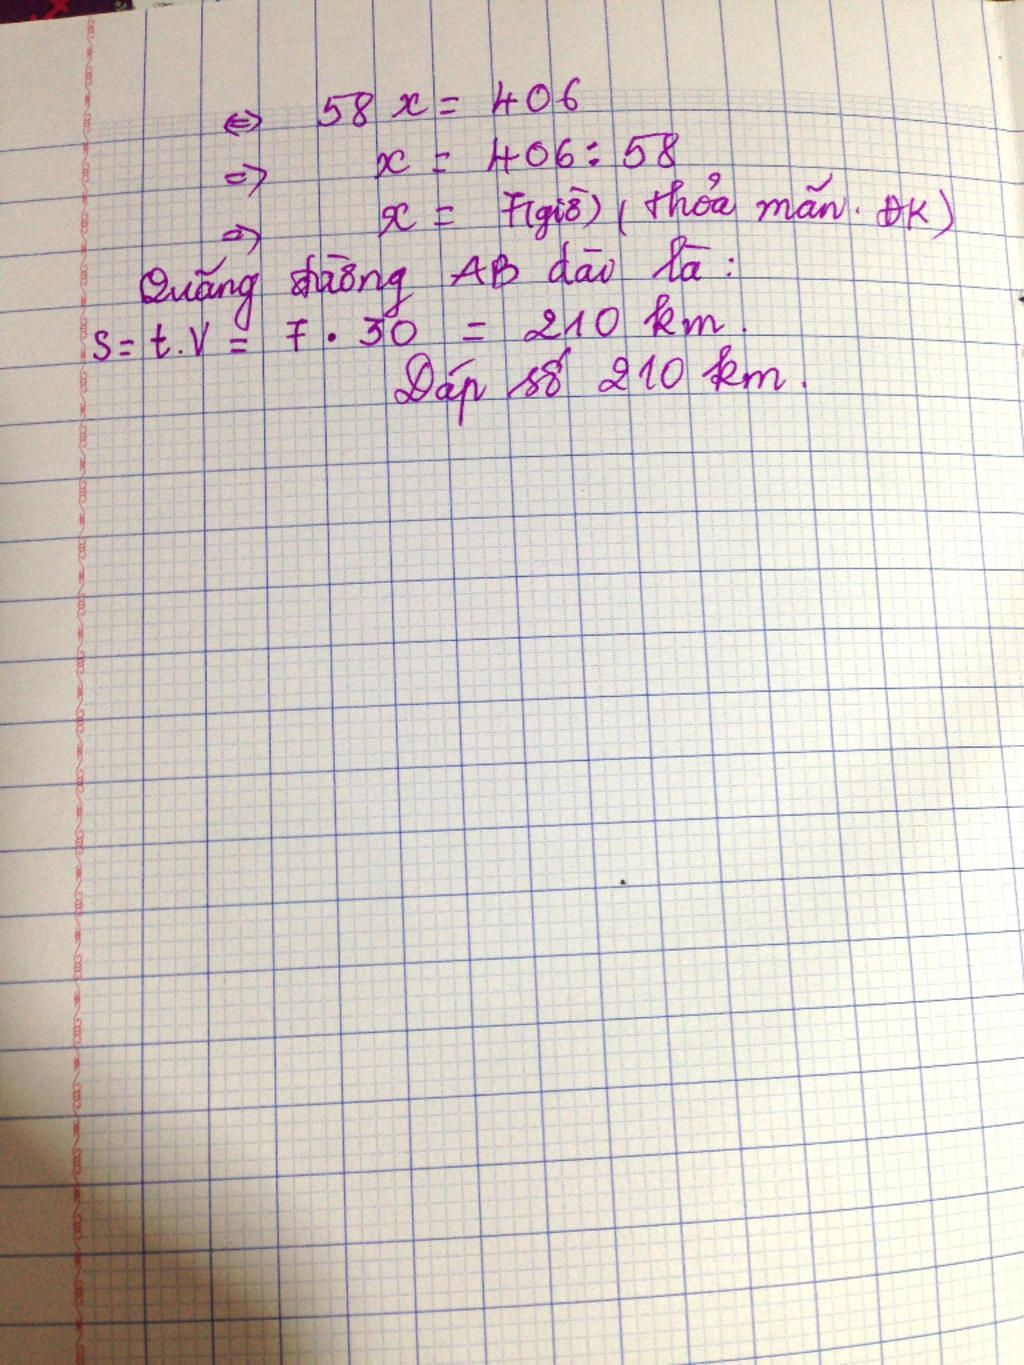 ⇔ 58 x = 406
=> x = 406 : 58
=> x = 7(giờ) (thỏa mãn. ĐK)
Quãng đường AB dào là :
S = t.V = 7 . 30 = 210 km.
Đáp số 210 km.